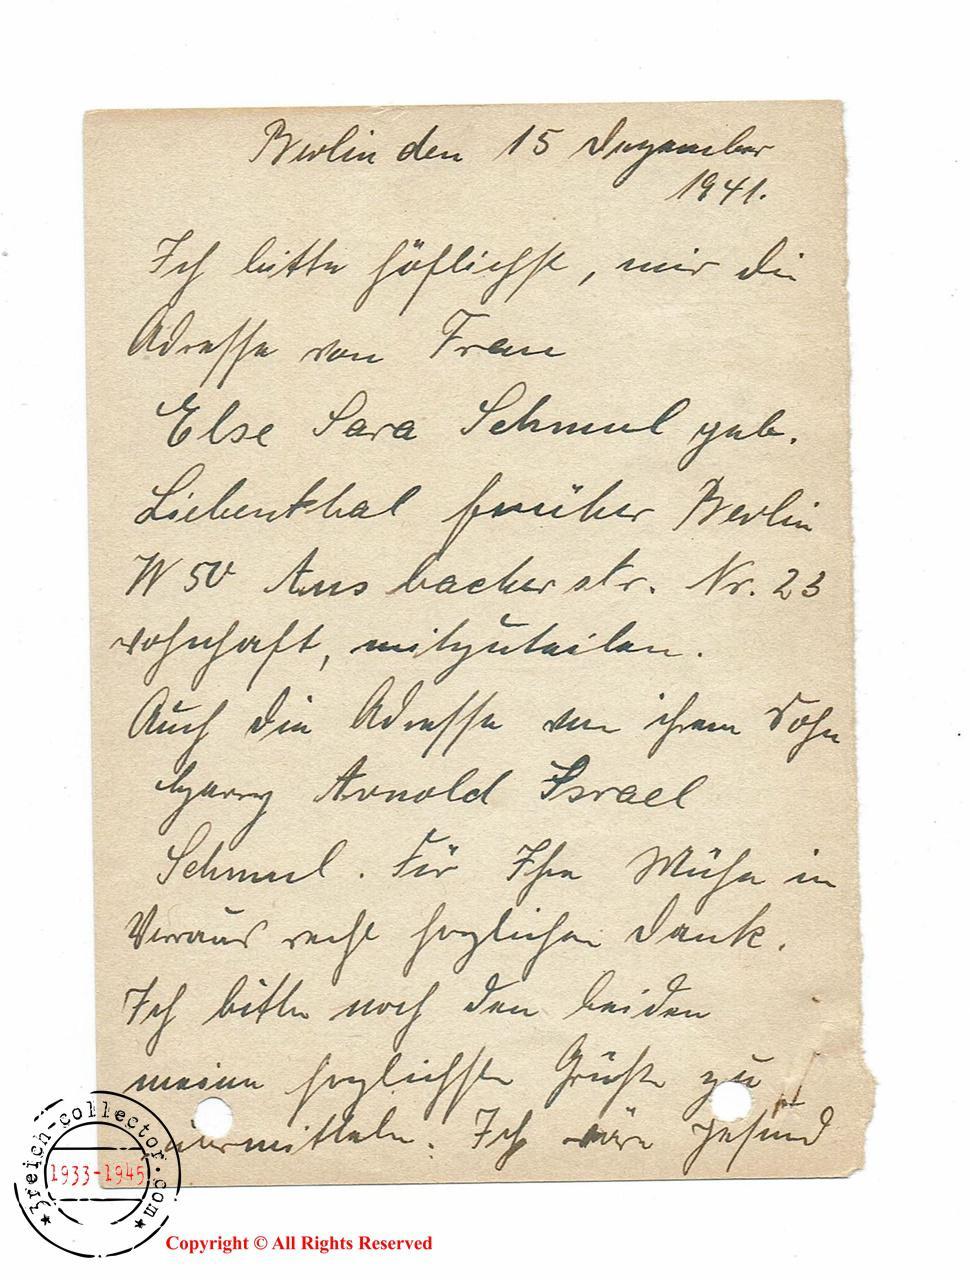 Berlin den 15 Dezember
1941.
Ich bitte höflichst, mir die
Adresse von Frau
Else Sara Schmul geb.
Liebenthal früher Berlin
W 50 Ansbacher str. Nr. 23
wohnhaft, mitzuteilen.
Auch die Adresse von ihrem Sohn
Harry Arnold Israel
Schmul. Für Ihre Mühe im
Voraus recht herzlichen Dank.
Ich bitte noch den beiden
meine herzlichsten Grüße zu
übermitteln. Ich wäre gesund
3reich-collector.com
1933-1945
Copyright © All Rights Reserved